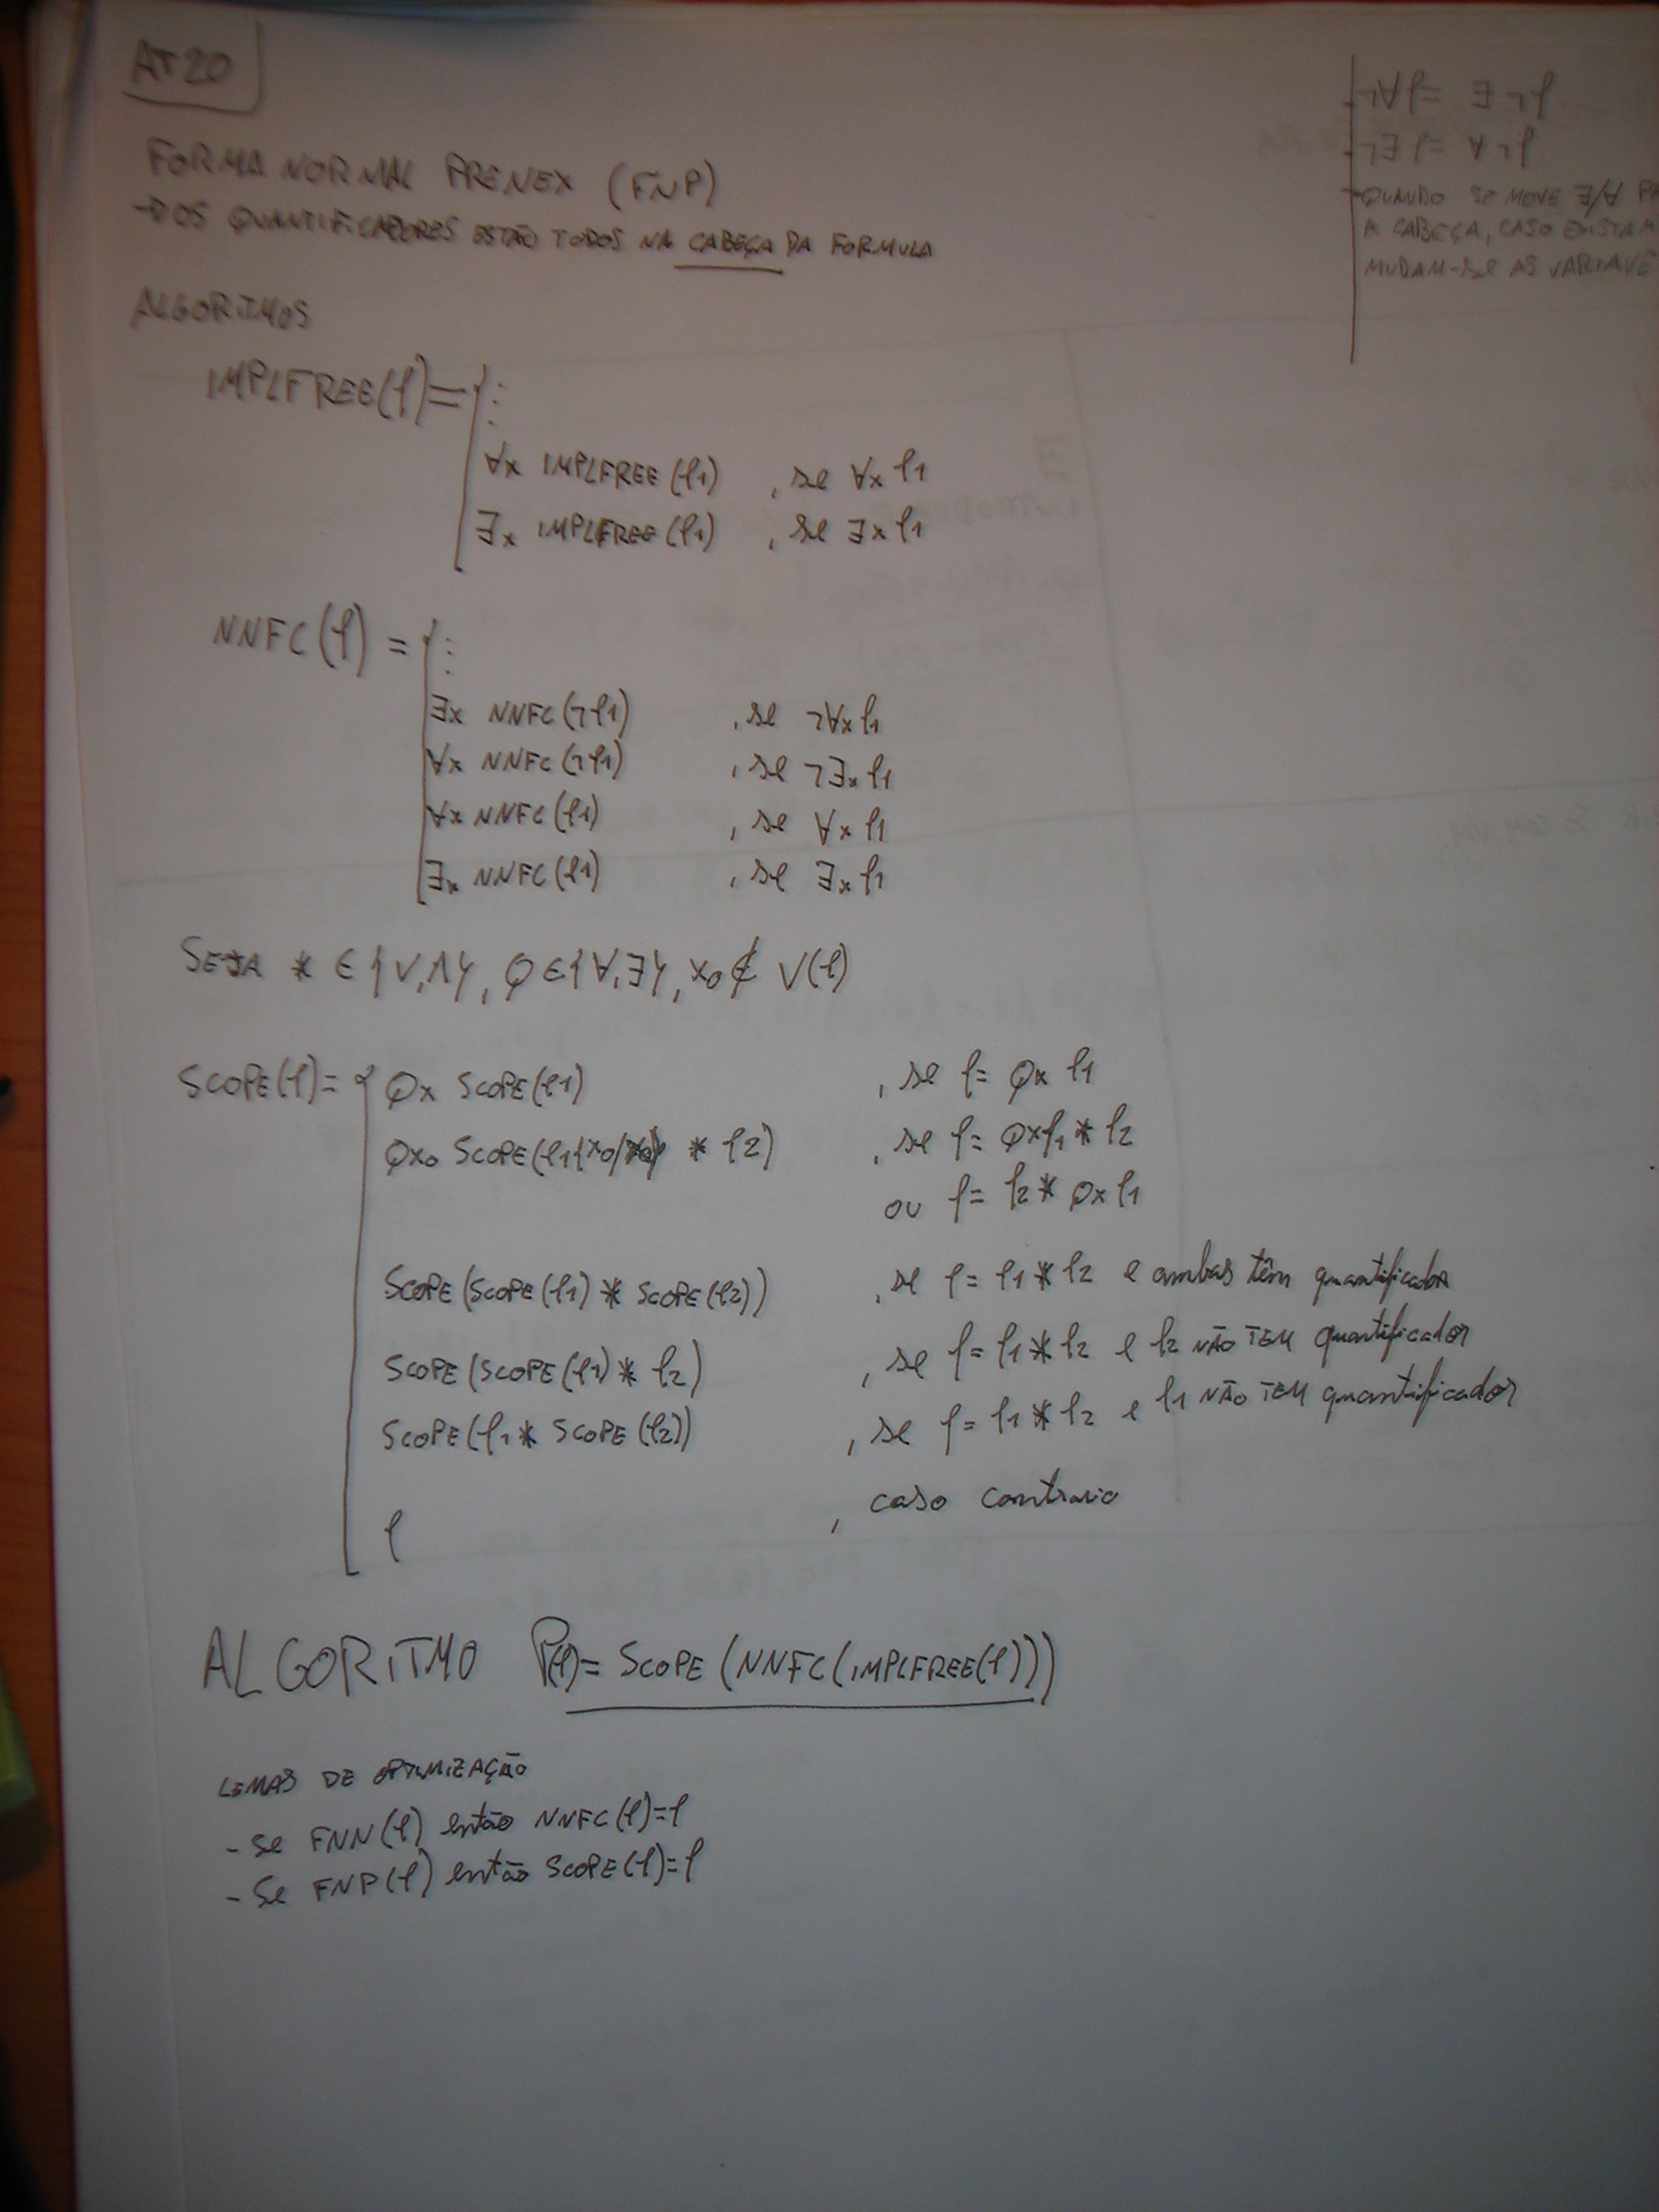 AT20
¬∀φ = ∃¬φ
¬∃φ = ∀¬φ
QUANDO SE MOVE ∃/∀ PA
A CABEÇA, CASO EXISTAM
MUDAM-SE AS VARIAVE
FORMA NORMAL PRENEX (FNP)
→ OS QUANTIFICADORES ESTÃO TODOS NA CABEÇA DA FORMULA
ALGORITMOS
IMPLFREE(φ) = { ⋮
∀x IMPLFREE(φ1) , se ∀x φ1
∃x IMPLFREE(φ1) , se ∃x φ1
NNFC(φ) = { ⋮
∃x NNFC(¬φ1) , se ¬∀x φ1
∀x NNFC(¬φ1) , se ¬∃x φ1
∀x NNFC(φ1) , se ∀x φ1
∃x NNFC(φ1) , se ∃x φ1
SEJA * ∈ {∨,∧}, Q ∈ {∀,∃}, x0 ∉ V(φ)
SCOPE(φ) = { Qx SCOPE(φ1) , se φ = Qx φ1
Qx0 SCOPE(φ1{x0/x} * φ2) , se φ = Qxφ1 * φ2
ou φ = φ2 * Qx φ1
SCOPE(SCOPE(φ1) * SCOPE(φ2)) , se φ = φ1 * φ2 e ambas têm quantificador
SCOPE(SCOPE(φ1) * φ2) , se φ = φ1 * φ2 e φ2 NÃO TEM quantificador
SCOPE(φ1 * SCOPE(φ2)) , se φ = φ1 * φ2 e φ1 NÃO TEM quantificador
φ , caso contrario
ALGORITMO P(φ) = SCOPE(NNFC(IMPLFREE(φ)))
LEMAS DE OPTIMIZAÇÃO
- Se FNN(φ) então NNFC(φ)=φ
- Se FNP(φ) então SCOPE(φ)=φ